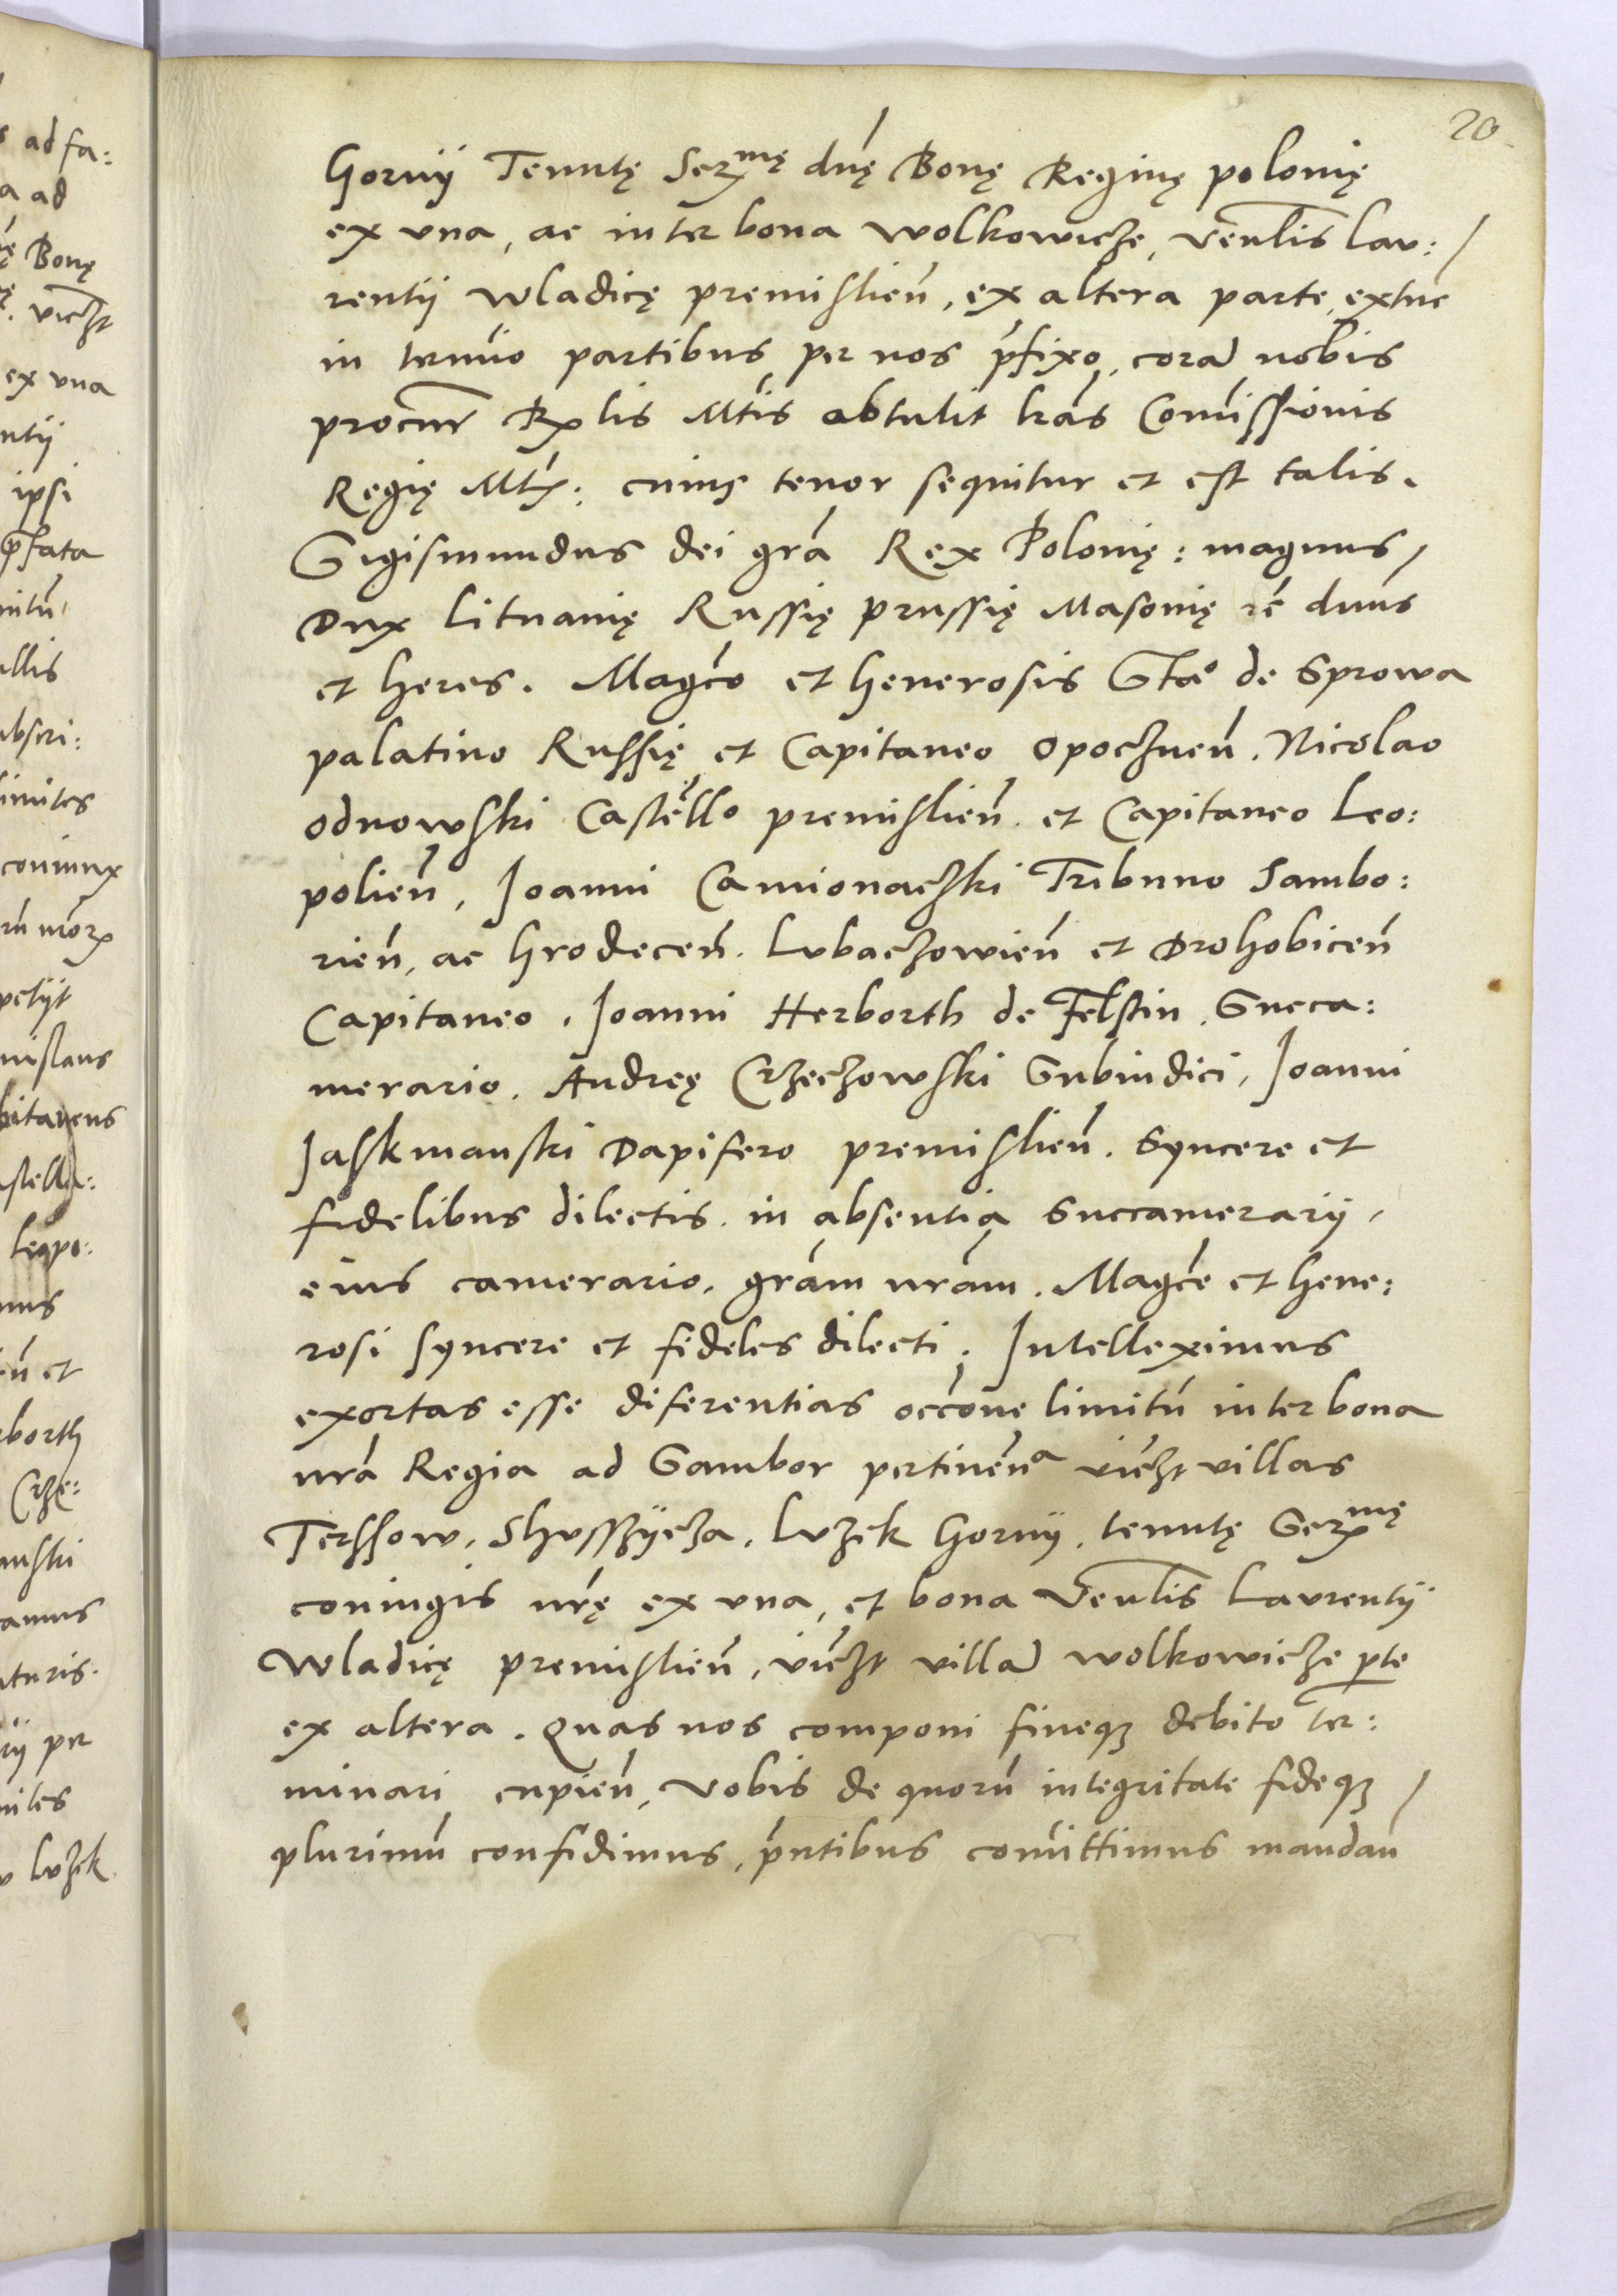 20
Gornÿ Tenutę Ser^mę dnę Bonę Reginę polonię
ex vna, ac inter bona wolkowicze, venlis lau:
rentÿ wladicę premislien, ex altera parte, extuc
in termio partibus per nos pfixo, cora nobis
procur Rglis Mtis obtulit lras Comissionis
Regię Mtis: cuius tenor sequitur et est talis.
Sigismundus dei gra Rex Polonię: magnus
Dux lituanię Russię prussię Masouię rc dnus
et heres. Magco et henerosis Stao de Sprowa
palatino Russię et Capitaneo opocznen. Nicolao
odnowski Castello premislien. et Capitaneo Leo:
polien, Joanni Camionaczki Tribuno Sambo:
rien, ac hrodecen. Lubaczowien et Drohobicen
Capitaneo. Joanni Herborth de Felstin. Succa:
merario. Andreę Crzeczowski Subiudici, Joanni
Jaskmanski Dapifero premislien. Syncere et
fidelibus dilectis. in absentia Succamerarÿ
eius camerario. gram nram. Magce et hene:
rosi syncere et fideles dilecti. Intelleximus
exortas esse diferentias occone limitu inter bona
nra Regia ad Sambor pertinen^a viczt villas
Terssow, Shusszÿcza. Luzek Gornÿ. tenutę Ser^mę
coniugis nrę ex vna, et bona Venlis Laurentÿ
Wladicę premislien, viczt villa wolkowicze pte
ex altera. Quas nos componi fineqz debito ter:
minari cupien, Vobis de quoru integritate fideqz
plurimu confidimus, pntibus comittimus mandan
ad fa:
a ad
Bonę
viczt
ex vna
ntÿ
ipsi
pfata
nitu
llis
bscri:
imites
coniunx
petÿt
nislaus
pitaneus
stella:
leopo:
nus
en et
borth
Crze:
nski
amus
turis.
rÿ per
nites
Luzek